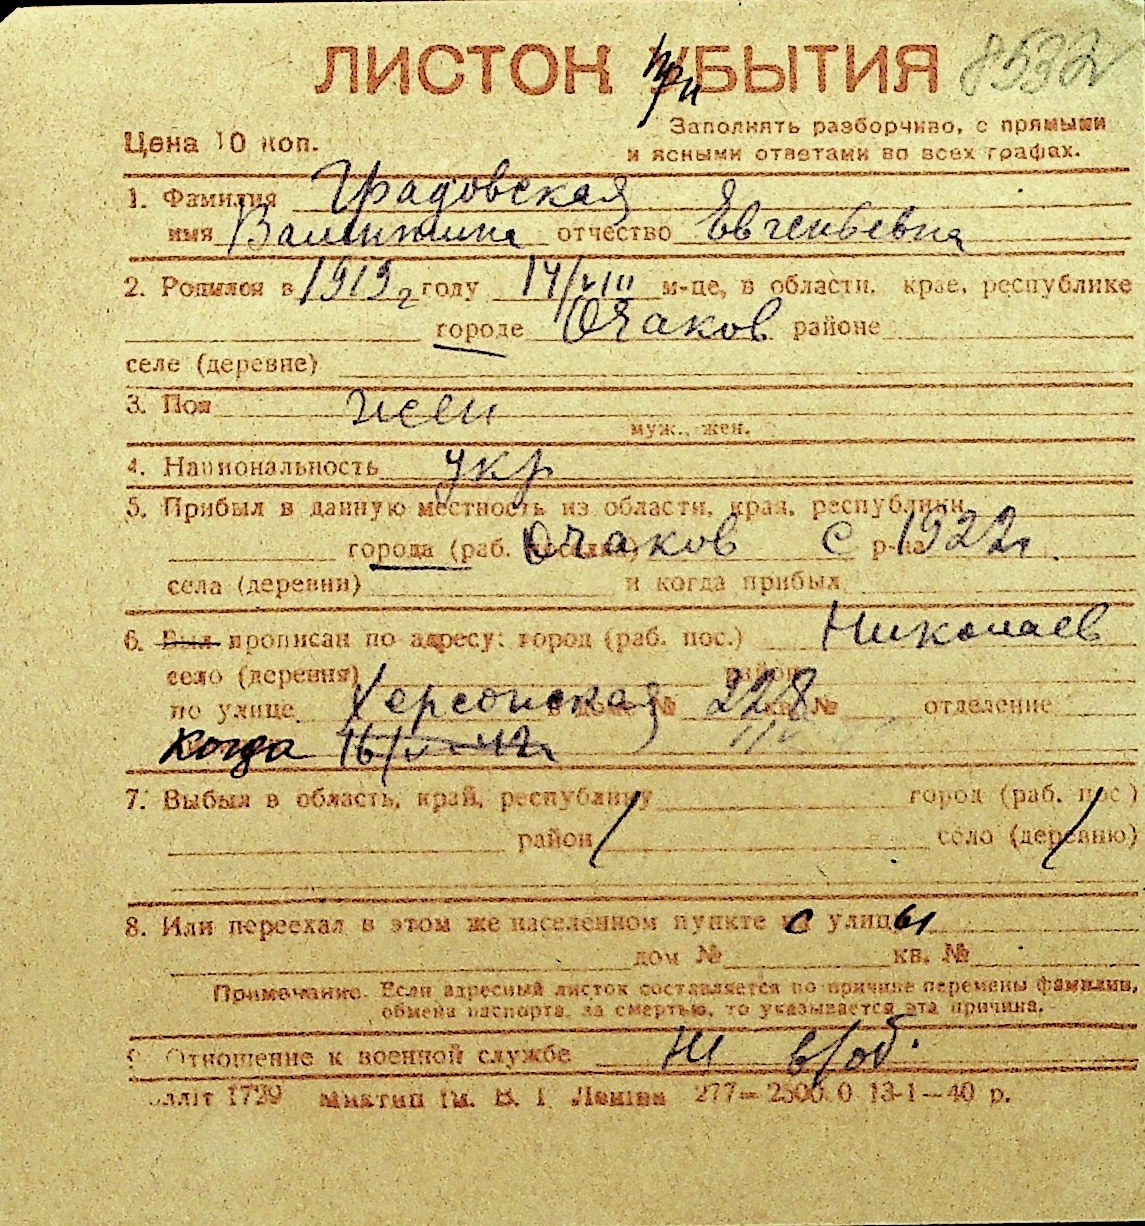 ЛИСТОК УБЫТИЯ 8532
при
Цена 10 коп.
Заполнять разборчиво, с прямыми
и ясными ответами во всех графах.
1. Фамилия Градовская
имя Валентина отчество Евгеньевна
2. Родился в 1919 г году 14/VIII м-це, в области, крае, республике
городе Очаков районе
селе (деревне)
3. Пол жен
муж., жен.
4. Национальность укр
5. Прибыл в данную местность из области, края, республики
города (раб. Очаков с р-на 1922 г.
села (деревни) и когда прибыл
6. Был прописан по адресу: город (раб. пос.) Николаев
село (деревня) район
по улице Херсонская в доме № 228 кв. № отделение
когда 16/V 42 г.
7. Выбыл в область, край, республику город (раб. пос.)
район село (деревню)
8. Или переехал в этом же населенном пункте с улицы
дом № кв. №
Примечание. Если адресный листок составляется по причине перемены фамилии,
обмена паспорта, за смертью, то указывается эта причина.
9. Отношение к военной службе н в/об.
1729 Миктип ім. В. І. Леніна 277— 25000 13-1—40 р.